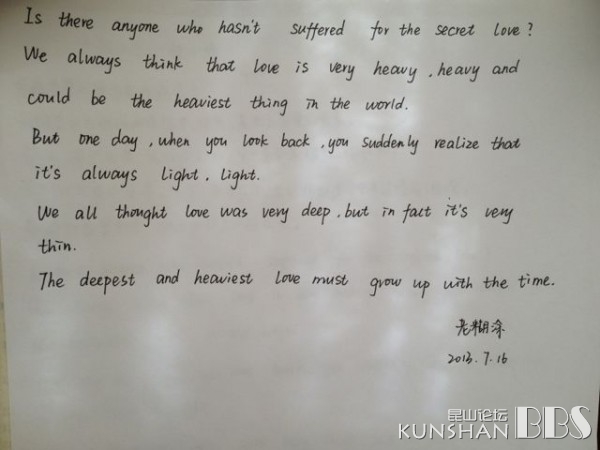 Is there anyone who hasn't suffered for the secret love?
We always think that love is very heavy, heavy and
could be the heaviest thing in the world.
But one day, when you look back, you suddenly realize that
it's always light, light.
We all thought love was very deep, but in fact it's very
thin.
The deepest and heaviest love must grow up with the time.
老糊涂
2013.7.16
昆山论坛
KUNSHAN BBS